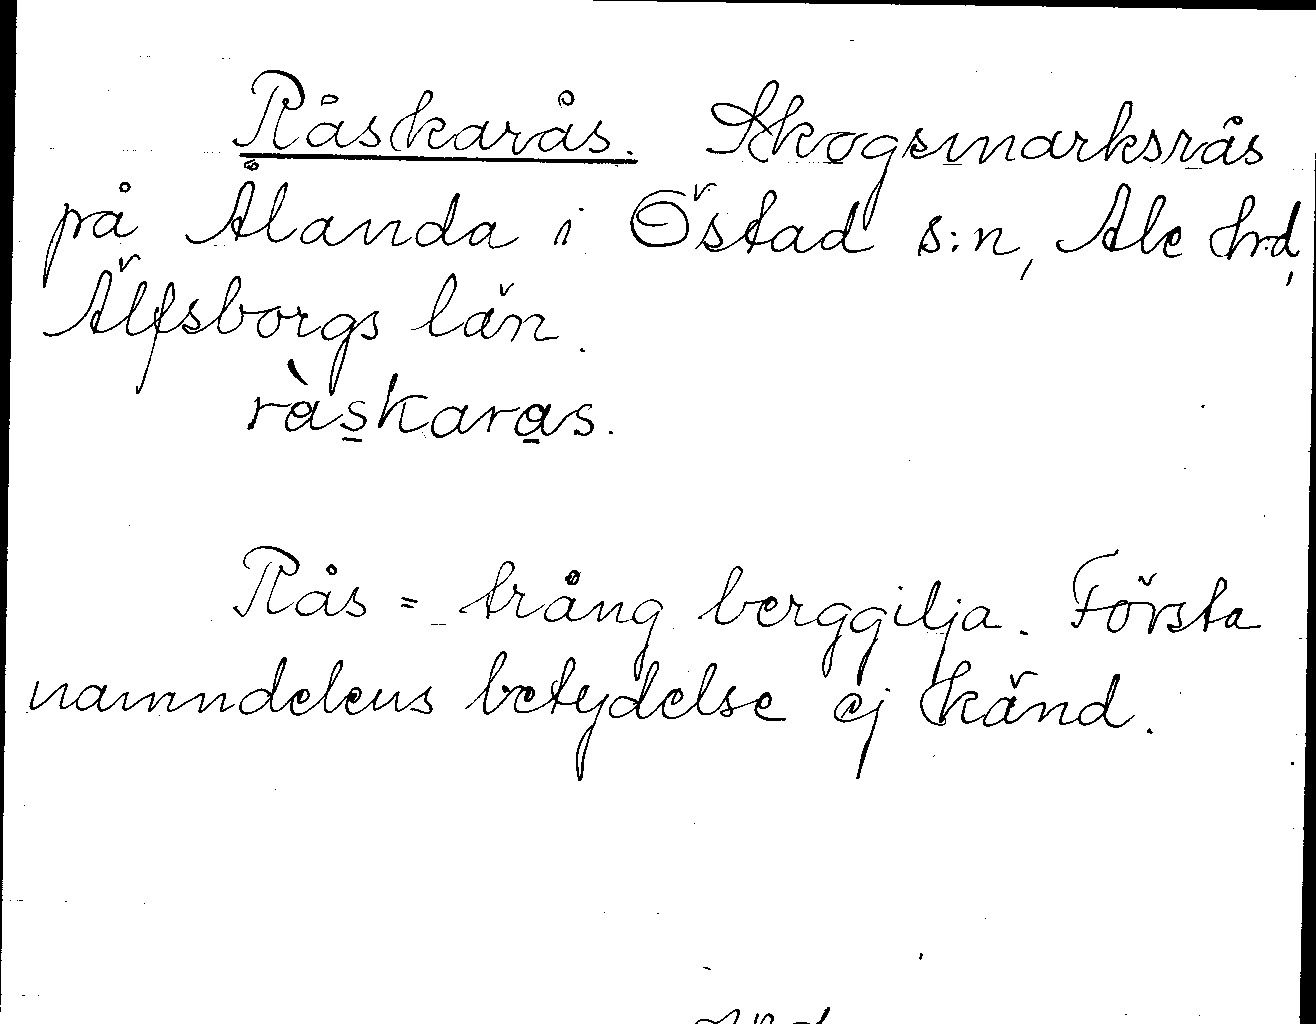 Råskarås. Skogsmarksrås
på Ålanda i Östad s:n, Ale hrd,
Älfsborgs län.
ràskaras.
Rås = trång berggilja. Första
namndelens betydelse ej känd.